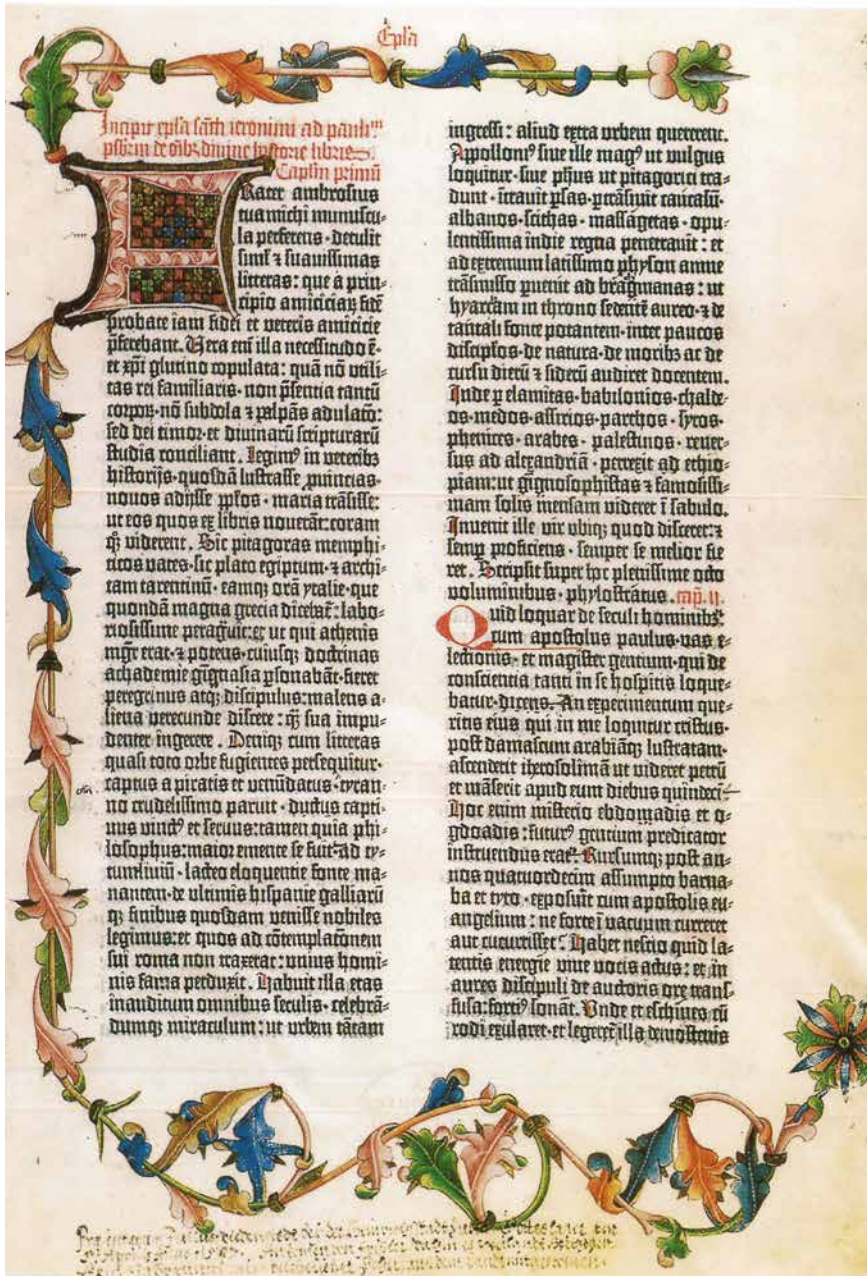 Epl̄a
Incipit epl̄a sācti ieronimi ad paulinū
pꝛesbiteꝝ de oībꝫ diuine hystorie libris.
Capl̄m primū
Frater ambrosius
tua michi munuscu⸗
la perferens· detulit
siml̕ ⁊ suauissimas
litteras: que a prin⸗
cipio amiciciaꝝ fidē
probate iam fidei et veteris amicicie
p̄ferebant. Uera em̄ illa necessitudo ē·
et xp̄i glutino copulata: quā nō utili⸗
tas rei familiaris· non p̄sentia tantū
corpoꝝ· nō subdola ⁊ palpās adulatō:
sed dei timor· et diuinarū scripturarū
studia conciliant. Legimꝰ in veteribꝫ
historijs· quosdā lustrasse ꝓuincias·
nouos adijsse ꝓplos· maria trāsisse:
ut eos quos ex libris nouerāt: coram
qꝫ viderent. Sic pitagoras memphi⸗
ticos vates· sic plato egiptum· ⁊ archi⸗
tam tarentinū· eamqꝫ orā ytalie· que
quondā magna grecia dicebat̄: labo⸗
riosissime peragrauit: et ut qui athenis
mgr̄ erat· ⁊ potens· cuiusqꝫ doctrinas
achademie gignasia ꝑsonabāt· fieret
peregrinus atqꝫ discipulus: malens a⸗
liena verecunde discere: qꝫ sua impu⸗
denter ingerere. Deniqꝫ cum litteras
quasi toto orbe fugientes persequitur·
captus a piratis et venūdatus· tyran⸗
no crudelissimo paruit· ductus capti⸗
uus vinctꝰ et seruus: tamen quia phi⸗
losophus: maior emente se fuit· ad ty⸗
tumliuiū· lacteo eloquentie fonte ma⸗
nantem· de ultimis hispanie galliarū
qꝫ finibus quosdam venisse nobiles
legimus: et quos ad cōtemplatōnem
sui roma non traxerat: unius homi⸗
nis fama perduxit. Habuit illa etas
inauditum omnibus seculis· celebrā⸗
dumqꝫ miraculum: ut urbem tātam
ingressi: aliud extra urbem quererent.
Apolloniꝰ siue ille magꝰ ut vulgus
loquitur· siue ph̄us ut pitagorici tra⸗
dunt· ītrauit ꝑsas· ꝑtrāsiuit caucasū·
albanos· scithas· massagetas· opu⸗
lentissima indie regna penetrauit: et
ad extremum latissimo physon amne
trāsmisso ꝑuenit ad bragmanas: ut
hyarcam in throno sedentē aureo· ⁊ de
tantali fonte potantem· inter paucos
discipl̄os· de natura· de moribꝫ ac de
cursu dierū ⁊ siderū audiret docentem.
Inde ꝑ elamitas· babilonios· chalde⸗
os· medos· assirios· parthos· syros·
phenices· arabes· palestinos· reuer⸗
sus ad alexandriā· perrexit ad ethio⸗
piam: ut gignosophistas ⁊ famosissi⸗
mam solis mensam videret ī sabulo.
Inuenit ille vir ubiqꝫ quod disceret: ⁊
semꝑ proficiens· semper se melior fie
ret. Scripsit super hoc plenissime octo
voluminibus· phylostratus. cap̄. II.
Quid loquar de seculi hominibꝫ:
cum apostolus paulus· vas e⸗
lectionis· et magister gentium· qui de
conscientia tanti in se hospitis loque⸗
batur· dicens. An experimentum que⸗
ritis eius qui in me loquitur cristus·
post damascum arabiāqꝫ lustratam·
ascenderit iherosolimā ut videret petrū
et māserit apud eum diebus quindeci̅·
Hoc enim misterio ebdomadis et o⸗
gdoadis: futurꝰ gentium predicator
instruendus erat. Rursumqꝫ post an⸗
nos quatuordecim assumpto barna⸗
ba et tyto· exposuit cum apostolis eu⸗
angelium: ne forte ī vacuum curreret
aut cucurrisset. Habet nescio quid la⸗
tentis energie viue vocis actus: et in
aures discipuli de auctoris ore trans⸗
fusa: fortiꝰ sonāt. Unde et eschines cū
rodi exularet· et legeret̄ illa demostenis